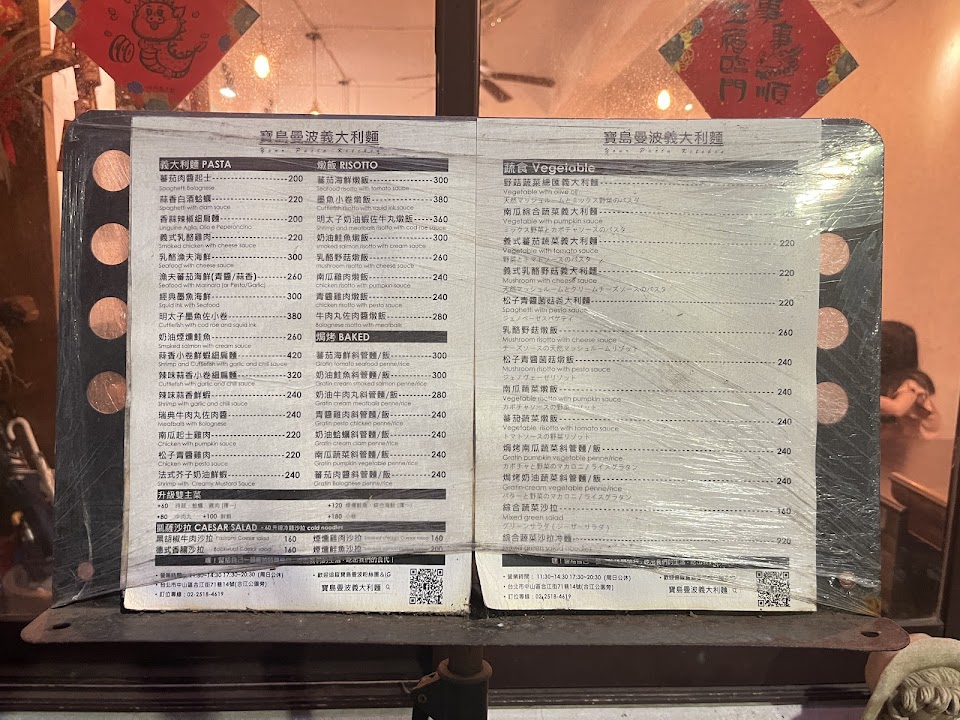 事事如順
五福臨門
寶島曼波義大利麵
Your Pasta Risotto
義大利麵 PASTA
蕃茄肉醬起士 200
Spaghetti Bolognese
蒜香白酒蛤蠣 220
Spaghetti with clam sauce
香蒜辣椒細扁麵 200
Linguine Aglio, Olio e Peperoncino
義式乳酪雞肉 220
Smoked chicken with cheese sauce
乳酪漁夫海鮮 300
Seafood with cheese sauce
漁夫蕃茄海鮮(青醬/蒜香) 260
Seafood with Marinara (or Pesto/Garlic)
經典墨魚海鮮 300
Squid ink with Seafood
明太子墨魚佐小卷 380
Cuttlefish with cod roe and squid ink
奶油煙燻鮭魚 260
Smoked salmon with cream sauce
蒜香小卷鮮蝦細扁麵 420
Shrimp and Cuttlefish with garlic and chili sauce
辣味蒜香小卷細扁麵 320
Cuttlefish with garlic and chili sauce
辣味蒜香鮮蝦 240
Shrimp with garlic and chili sauce
瑞典牛肉丸佐肉醬 240
Meatballs with Bolognese
南瓜起士雞肉 220
Chicken with pumpkin sauce
松子青醬雞肉 220
Chicken with pesto sauce
法式芥子奶油鮮蝦 240
Shrimp with Creamy Mustard Sauce
燉飯 RISOTTO
蕃茄海鮮燉飯 300
Seafood risotto with tomato sauce
墨魚小卷燉飯 380
Cuttlefish risotto with squid ink sauce
明太子奶油蝦佐牛丸燉飯 360
Shrimp and meatballs risotto with cod roe sauce
奶油鮭魚燉飯 300
smoked salmon risotto with cream sauce
乳酪野菇燉飯 260
mushroom risotto with cheese sauce
南瓜雞肉燉飯 240
chicken risotto with pumpkin sauce
青醬雞肉燉飯 240
chicken risotto with pesto sauce
牛肉丸佐肉醬燉飯 280
Bolognese risotto with meatballs
焗烤 BAKED
蕃茄海鮮斜管麵/飯 300
Gratin seafood penne/rice
奶油鮭魚斜管麵/飯 300
Gratin cream smoked salmon penne/rice
奶油牛肉丸斜管麵/飯 280
Gratin cream meatballs penne/rice
青醬雞肉斜管麵/飯 240
Gratin pesto chicken penne/rice
奶油蛤蠣斜管麵/飯 240
Gratin cream clam penne/rice
南瓜蔬菜斜管麵/飯 240
Gratin pumpkin vegetable penne/rice
蕃茄肉醬斜管麵/飯 240
Gratin Bolognese penne/rice
升級雙主菜
+60
+120
+80 牛肉丸 +100 鮮蝦
+180 小卷
凱薩沙拉 CAESAR SALAD +60 升級冷麵沙拉 cold noodles
黑胡椒牛肉沙拉 160
煙燻雞肉沙拉 160
德式香腸沙拉 160
煙燻鮭魚沙拉 200
• 營業時間: 11:30~14:30 17:30~20:30 (周日公休)
• 台北市中山區合江街71巷14號(合江公園旁)
• 訂位專線: 02-2518-4619
• 歡迎追蹤寶島曼波粉絲團&IG
寶島曼波義大利麵
寶島曼波義大利麵
Your Pasta Risotto
蔬食 Vegetable
野菇蔬菜細扁義大利麵
Vegetable with olive oil
天然マッシュルームとミックス野菜のパスタ
南瓜綜合蔬菜義大利麵
Vegetable with pumpkin sauce
ミックス野菜とカボチャソースのパスタ
義式蕃茄蔬菜義大利麵 220
Vegetable with tomato sauce
野菜とトマトソースのパスタ
義式乳酪野菇義大利麵
Mushroom with cheese sauce
天然マッシュルームとクリームチーズソースのパスタ
松子青醬菌菇義大利麵 220
Spaghetti with pesto sauce
ジェノベーゼスパゲティ
乳酪野菇燉飯 260
Mushroom risotto with cheese sauce
チーズソースの天然マッシュルームリゾット
松子青醬菌菇燉飯 240
Mushroom risotto with pesto sauce
ジェノヴェーゼリゾット
南瓜蔬菜燉飯 240
Vegetable risotto with pumpkin sauce
カボチャソースの野菜リゾット
蕃茄蔬菜燉飯 240
Vegetable risotto with tomato sauce
トマトソースの野菜リゾット
焗烤南瓜蔬菜斜管麵/飯 240
Gratin pumpkin vegetable penne/rice
カボチャと野菜のマカロニ/ライスグラタン
焗烤奶油蔬菜斜管麵/飯 240
Gratin cream vegetable penne/rice
バターと野菜のマカロニ/ライスグラタン
綜合蔬菜沙拉 160
Mixed green salad
グリーンサラダ(シーザーサラダ)
綜合蔬菜沙拉冷麵 220
• 營業時間: 11:30~14:30 17:30~20:30 (周日公休)
• 台北市中山區合江街71巷14號(合江公園旁)
• 訂位專線: 02-2518-4619
寶島曼波義大利麵